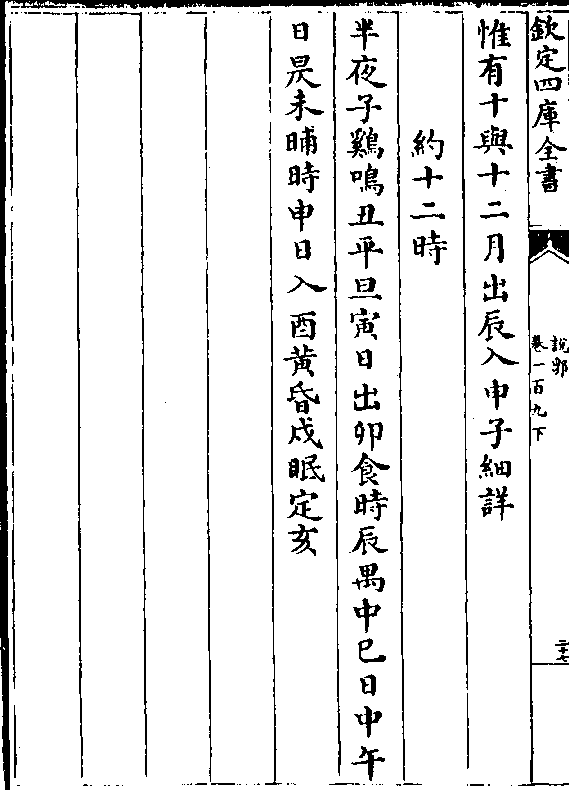 欽定四庫全書
說郛
卷一百九下
二十七
惟有十與十二月出辰入申子細詳
約十二時
半夜子鷄鳴丑平旦寅日出卯食時辰禺中巳日中午
日昃未晡時申日入酉黃昏戌眠定亥